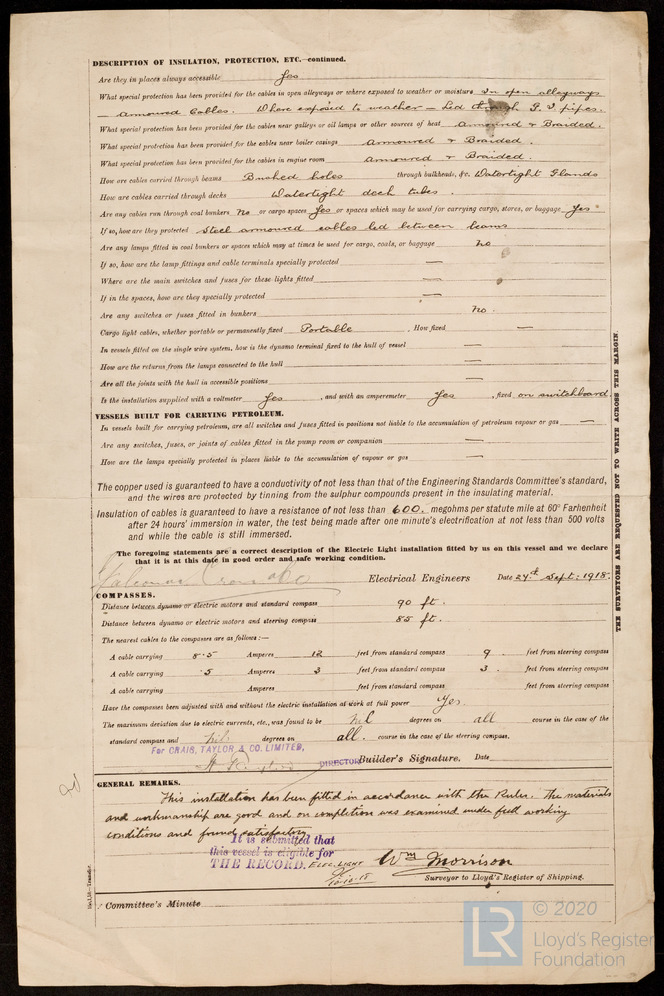 DESCRIPTION OF INSULATION, PROTECTION, ETC.—continued.
Are they in places always accessible Yes
What special protection has been provided for the cables in open alleyways or where exposed to weather or moisture In open alleyways
— Armoured Cables. Where exposed to weather — Led through G. I. pipes.
What special protection has been provided for the cables near galleys or oil lamps or other sources of heat Armoured & Braided.
What special protection has been provided for the cables near boiler casings Armoured & Braided.
What special protection has been provided for the cables in engine room Armoured & Braided.
How are cables carried through beams Bushed holes through bulkheads, &c. Watertight Glands
How are cables carried through decks Watertight deck tubes.
Are any cables run through coal bunkers No or cargo spaces Yes or spaces which may be used for carrying cargo, stores, or baggage Yes
If so, how are they protected Steel armoured cables led between beams
Are any lamps fitted in coal bunkers or spaces which may at times be used for cargo, coals, or baggage No
If so, how are the lamp fittings and cable terminals specially protected —
Where are the main switches and fuses for these lights fitted —
If in the spaces, how are they specially protected —
Are any switches or fuses fitted in bunkers No.
Cargo light cables, whether portable or permanently fixed Portable . How fixed —
In vessels fitted on the single wire system, how is the dynamo terminal fixed to the hull of vessel —
How are the returns from the lamps connected to the hull —
Are all the joints with the hull in accessible positions —
Is the installation supplied with a voltmeter Yes , and with an amperemeter Yes , fixed on switchboard.
VESSELS BUILT FOR CARRYING PETROLEUM.
In vessels built for carrying petroleum, are all switches and fuses fitted in positions not liable to the accumulation of petroleum vapour or gas —
Are any switches, fuses, or joints of cables fitted in the pump room or companion —
How are the lamps specially protected in places liable to the accumulation of vapour or gas —
The copper used is guaranteed to have a conductivity of not less than that of the Engineering Standards Committee's standard,
and the wires are protected by tinning from the sulphur compounds present in the insulating material.
Insulation of cables is guaranteed to have a resistance of not less than 600. megohms per statute mile at 60° Farhenheit
after 24 hours' immersion in water, the test being made after one minute's electrification at not less than 500 volts
and while the cable is still immersed.
The foregoing statements are a correct description of the Electric Light installation fitted by us on this vessel and we declare
that it is at this date in good order and safe working condition.
Electrical Engineers Date 24th Sept: 1918.
COMPASSES.
Distance between dynamo or electric motors and standard compass 90 ft.
Distance between dynamo or electric motors and steering compass 85 ft.
The nearest cables to the compasses are as follows:—
A cable carrying 8.5 Amperes 12 feet from standard compass 9 feet from steering compass
A cable carrying .5 Amperes 3 feet from standard compass 3. feet from steering compass
A cable carrying Amperes feet from standard compass feet from steering compass
Have the compasses been adjusted with and without the electric installation at work at full power Yes.
The maximum deviation due to electric currents, etc., was found to be Nil degrees on all course in the case of the
standard compass and Nil degrees on all. course in the case of the steering compass.
For CRAIG, TAYLOR & CO. LIMITED,
DIRECTOR Builder's Signature. Date
GENERAL REMARKS.
This installation has been fitted in accordance with the Rules. The materials
and workmanship are good and on completion was examined under full working
conditions and found satisfactory.
It is submitted that
this vessel is eligible for
THE RECORD. ELEC. LIGHT
10-10-18
Wm Morrison
Surveyor to Lloyd's Register of Shipping.
Committee's Minute
THE SURVEYORS ARE REQUESTED NOT TO WRITE ACROSS THIS MARGIN.
LR
© 2020
Lloyd's Register
Foundation